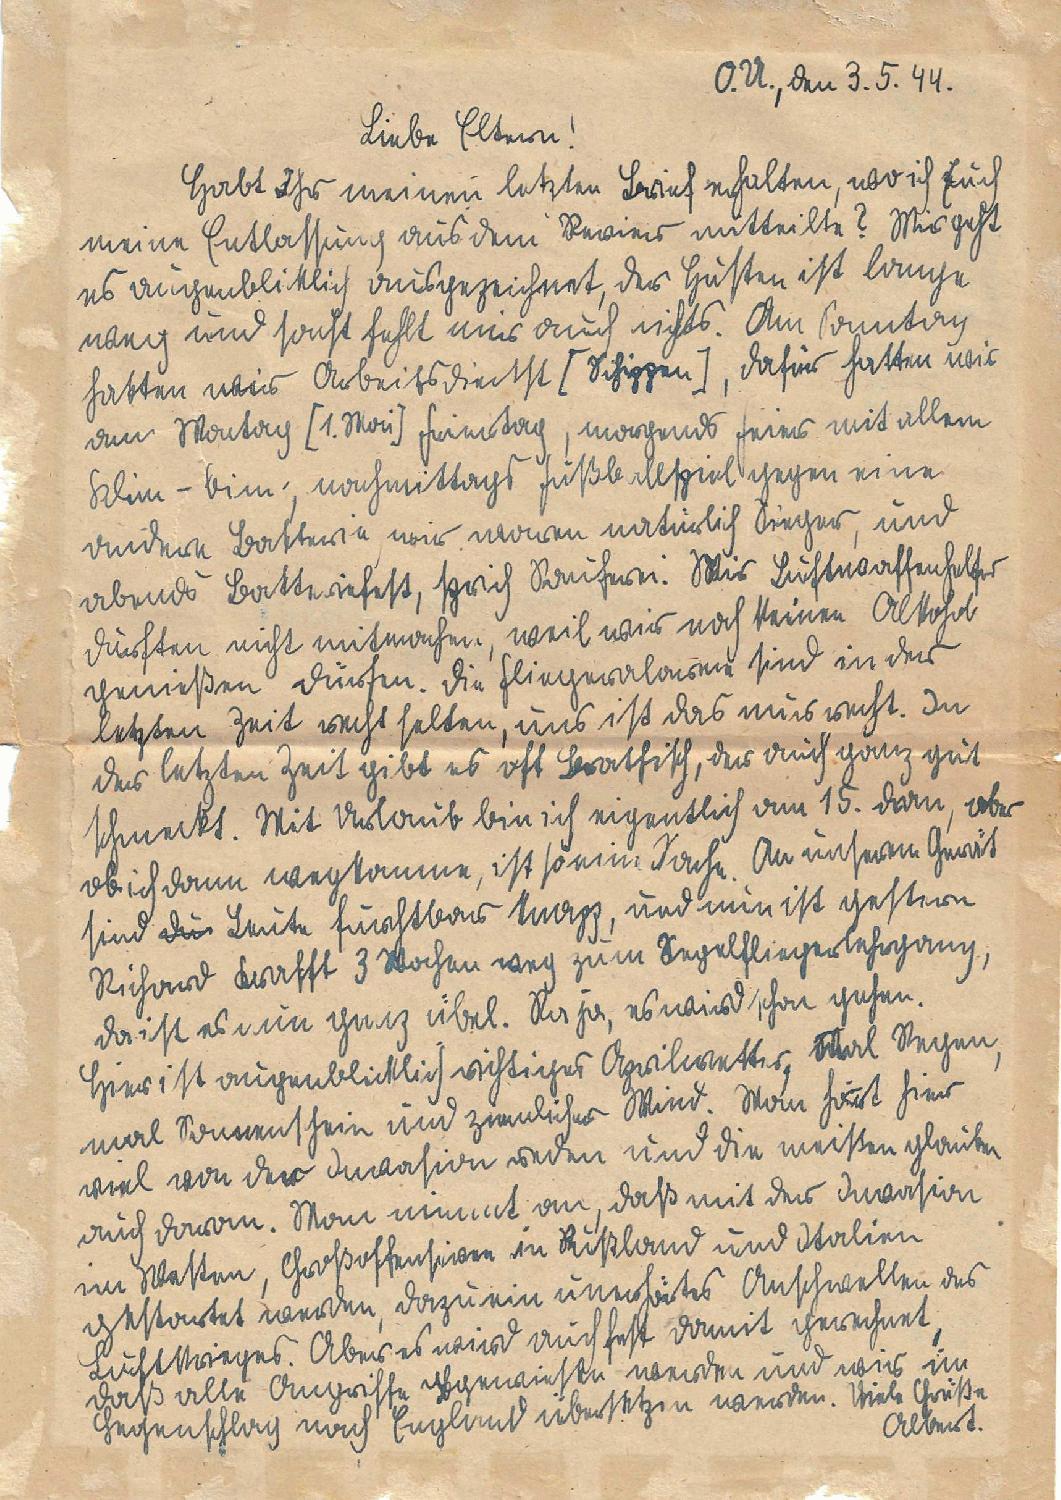 O.U., den 3.5.44.
Liebe Eltern!
Habt Ihr meinen letzten Brief erhalten, wo ich Euch
meine Entlassung aus dem Revier mitteilte? Mir geht
es augenbliklich ausgezeichnet, der Husten ist lange
weg und sonst fehlt mir auch nichts. Am Sonntag
hatten wir Arbeitsdienst [Schippen], dafür hatten wir
am Montag [1. Mai] Feiertag, morgends Feier mit allem
Klim-bim, nachmittags Fußballspiel gegen eine
andere Batterie, wir waren natürlich Sieger, und
abends Batteriefest, sprich Sauferei. Wir Luftwaffenhelfer
durften nicht mitmachen, weil wir noch keinen Alkohol
genießen dürfen. Die Fliegeralarme sind in der
letzten Zeit recht selten, uns ist das nur recht. In
der letzten Zeit gibt es oft Bratfisch, der auch ganz gut
schmeckt. Mit Urlaub bin ich eigentlich am 15. dran, aber
ob ich dann wegkomme, ist so eine Sache. An unserem Gerät
sind die Leute furchtbar knapp, und nun ist gestern
Richard Krafft 3 Wochen weg zum Segelfliegerlehrgang,
da ist es nun ganz übel. Na ja, es wird schon gehen.
Hier ist augenblicklich richtiges Aprilwetter, mal Regen,
mal Sonnenschein und ziemlicher Wind. Man hört hier
viel von der Invasion reden und die meisten glauben
auch daran. Man nimmt an, daß mit der Invasion
im Westen, Großoffensiven in Rußland und Italien
gestartet werden, dazu ein unerhörtes Anschwellen des
Luftkrieges. Aber es wird auch fest damit gerechnet,
daß alle Angriffe abgewiesen werden und wir im
Gegenschlag nach England übersetzen werden. Viele Grüße
Albert.